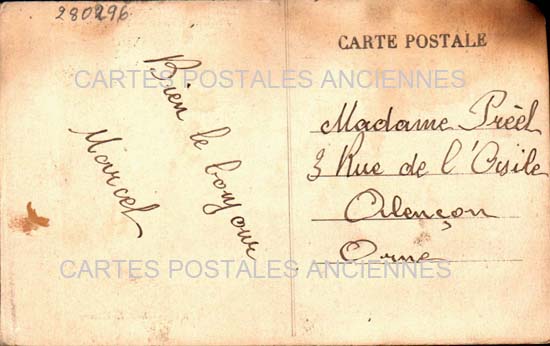 280296
CARTE POSTALE
CARTES POSTALES ANCIENNES
Bien le bonjour
Marcel
Madame Préel
3 Rue de l'Asile
Alençon
Orne
CARTES POSTALES ANCIENNES